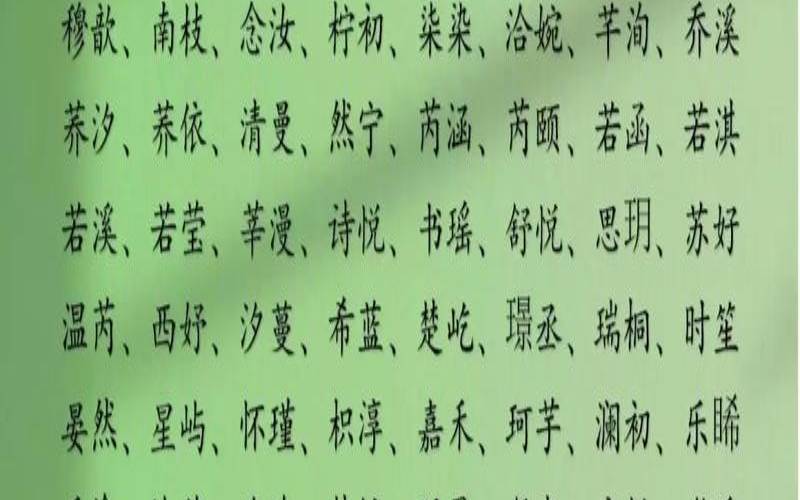 穆歆、南枝、念汝、柠初、柒染、洽婉、芊洵、乔溪
荞汐、荞依、清曼、然宁、芮涵、芮颐、若函、若淇
若溪、若莹、莘漫、诗悦、书瑶、舒悦、思玥、苏好
温芮、西妤、汐蔓、希蓝、楚屹、璟丞、瑞桐、时笙
晏然、星屿、怀瑾、枳淳、嘉禾、珂芋、澜初、乐睎